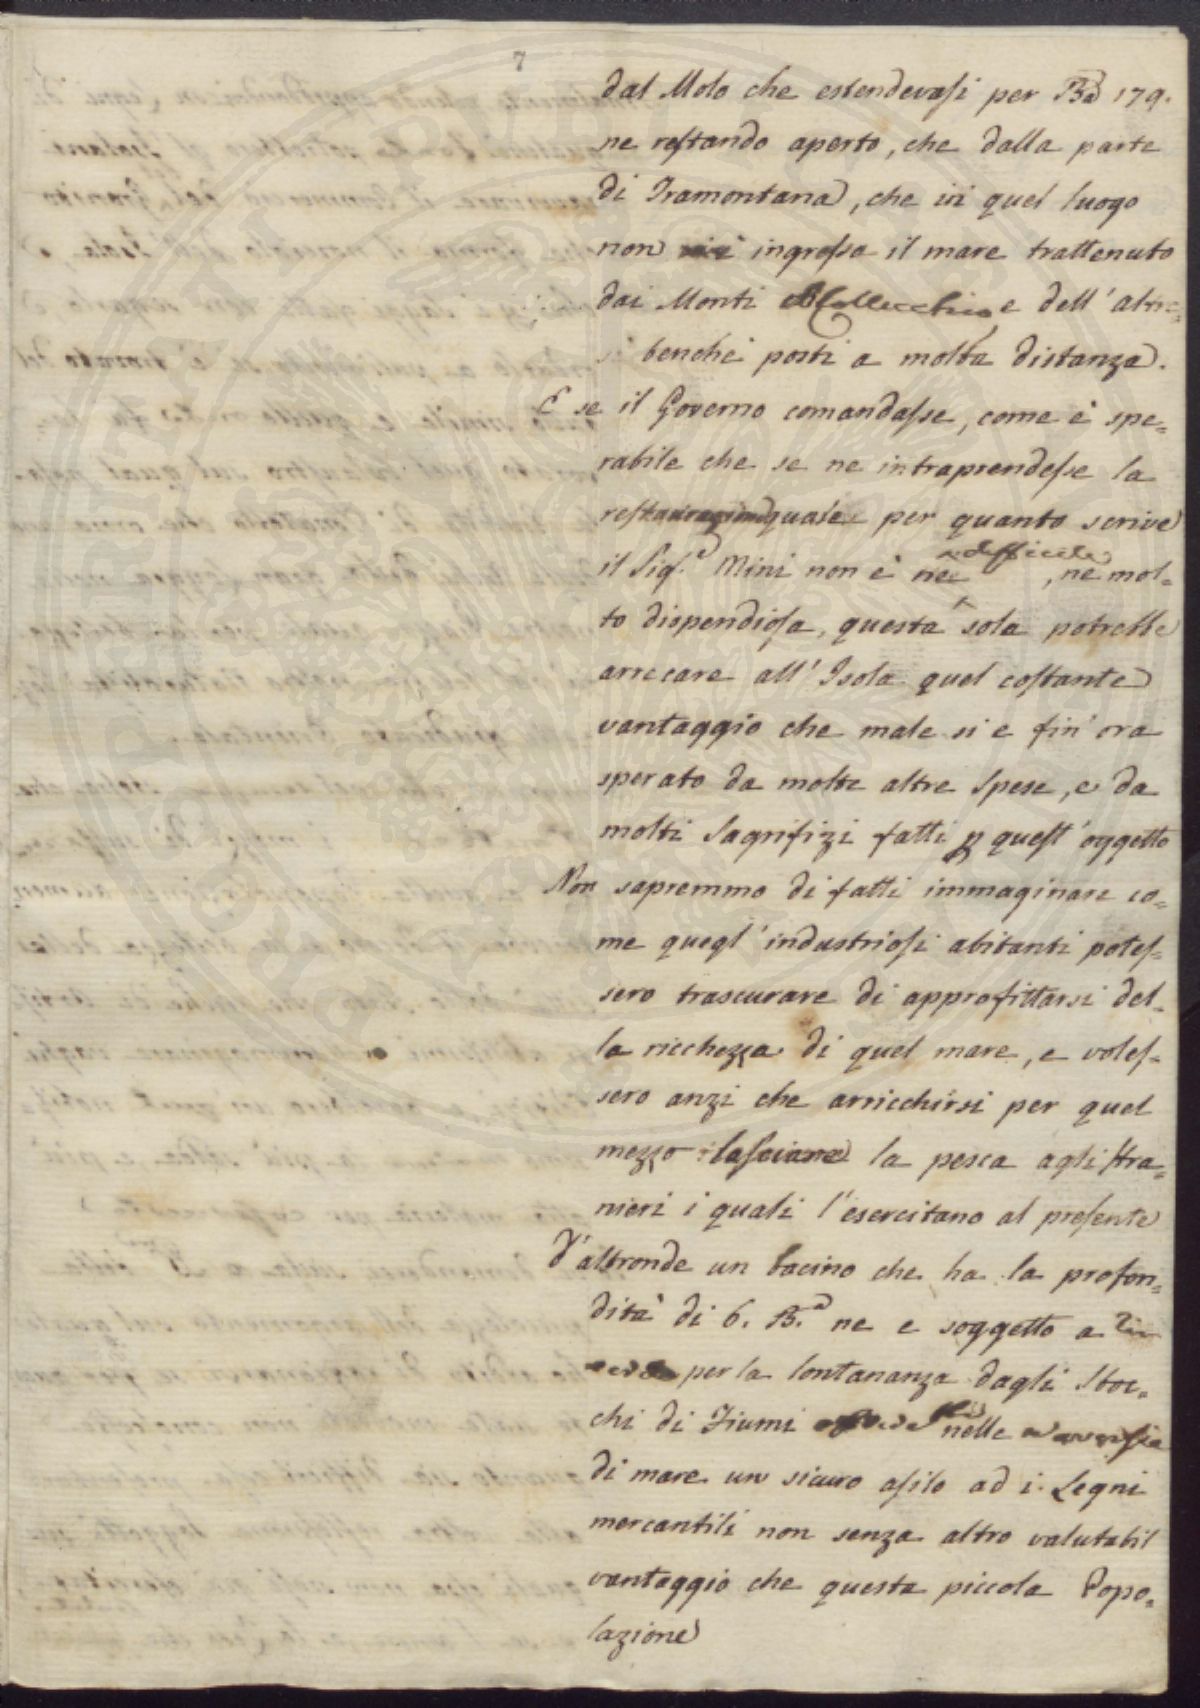 7
dal Molo che estendevasi per Bª 179.
ne restando aperto, che dalla parte
di Tramontana, che in quel luogo
non ingrossa il mare trattenuto
dai Monti Collecchio e dell'
benche posti a molta distanza.
E se il Governo comandasse, come è spe=
rabile che se ne intraprendesse la
restaurazione quale per quanto scrive
il Sigʳ Mini non è ne difficile, ne mol=
to dispendiosa, questa sola potrebbe
arrecare all' Isola quel costante
vantaggio che male si e fin' ora
sperato da molte altre Spese, e da
molti Sagrifizi fatti p quest' oggetto
Non sapremmo di fatti immaginare co=
me quegl' industriosi abitanti potes=
sero trascurare di approfittarsi del=
la ricchezza di quel mare, e voles=
sero anzi che arricchirsi per quel
mezzo lasciare la pesca agli stra=
nieri i quali l'esercitano al presente
D'altronde un bacino che ha la profon=
dità di 6. B.ª ne e soggetto a
per la lontananza dagli Sboc=
chi di Fiumi nelle
di mare un sicuro asilo ad i Legni
mercantili non senza altro valutabil
vantaggio che questa piccola Popo=
lazione